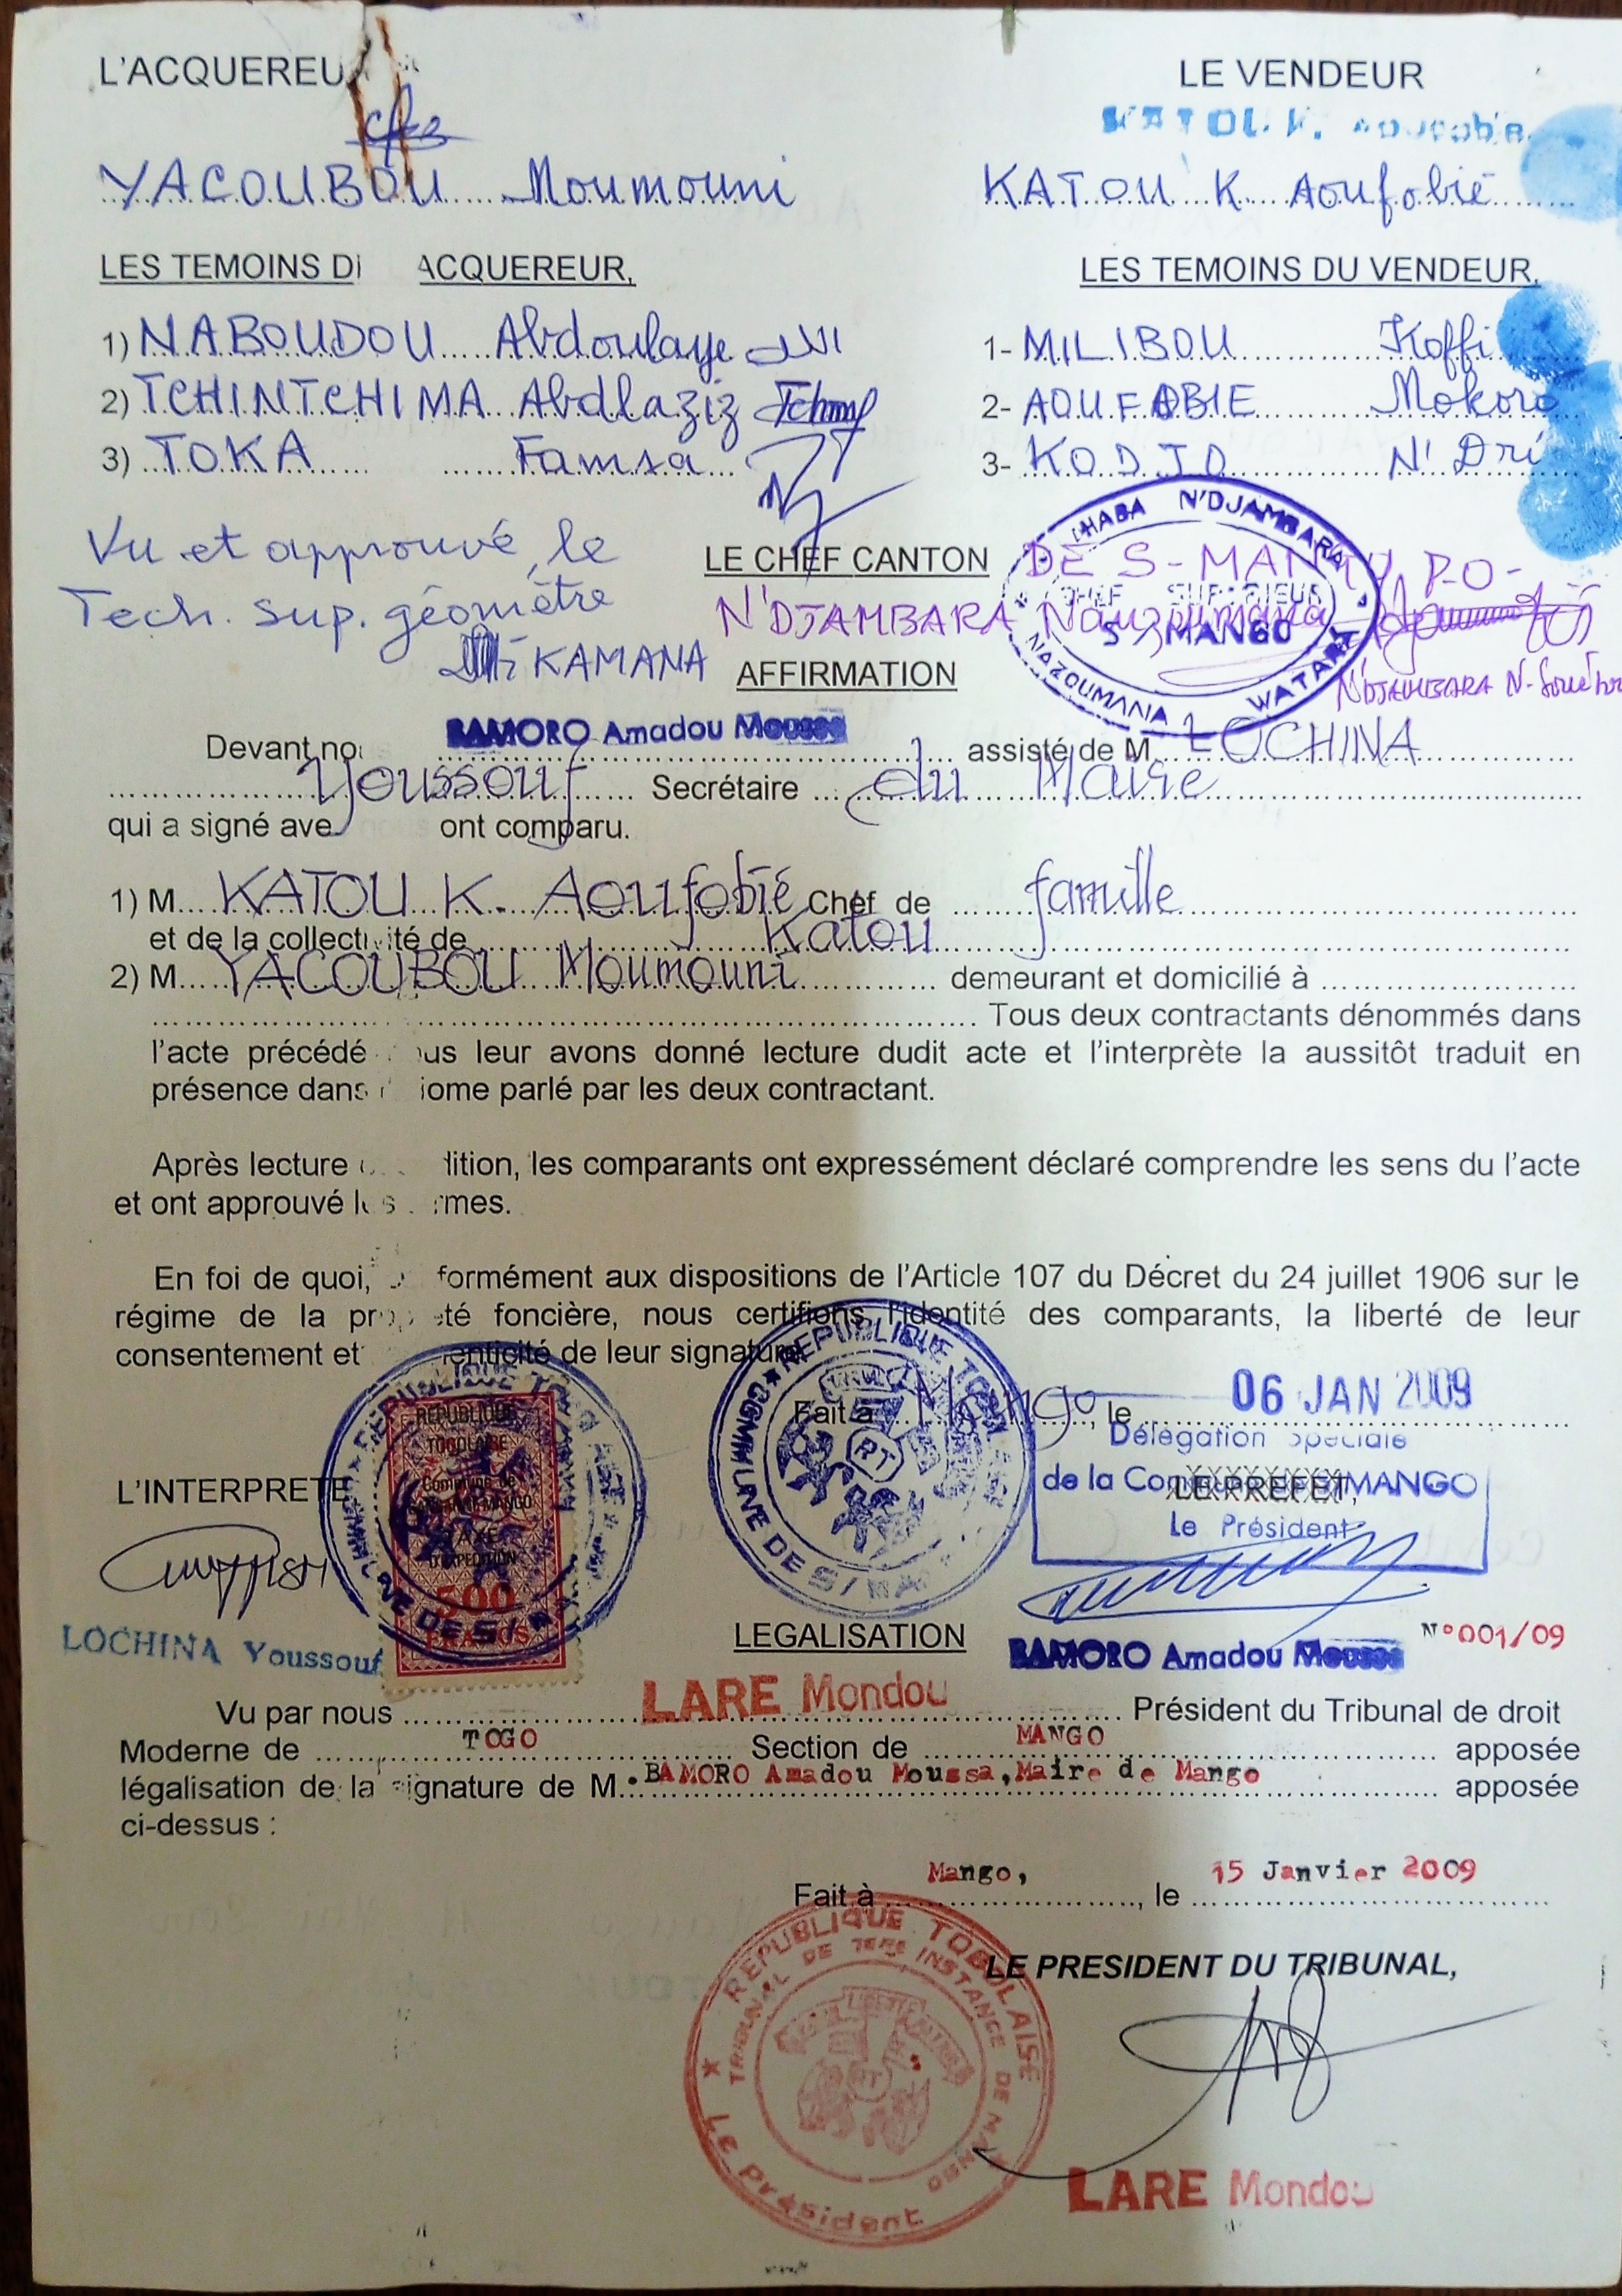 L'ACQUEREU
LE VENDEUR
KATOU K. Aoufobié
YACOUBOU Moumouni
KATOU K. Aoufobié
LES TEMOINS D ACQUEREUR,
LES TEMOINS DU VENDEUR,
1) NABOUDOU Abdoulaye
1- MILIBOU Koffi
2) TCHINTCHIMA Abdlaziz
2- AOUFOBIE Mokoro
3) TOKA Famsa
3- KODJO N'Dri
Vu et approuvé, le
Tech. Sup. géomètre
KAMANA
LE CHEF CANTON DE S-MANGO, P.O-
N'DJAMBARA Nanzoumana
N'DJAMBARA
CHEF SUPERIEUR
S/MANGO
NAZOUMANA WATARA
N'DJAMBARA N-
AFFIRMATION
Devant no BAMORO Amadou Moussa assisté de M. LOCHINA
Youssouf Secrétaire du Maire
qui a signé ave ont comparu.
1) M. KATOU K. Aoufobié Chef de famille
et de la collectivité de Katou
2) M. YACOUBOU Moumouni demeurant et domicilié à
Tous deux contractants dénommés dans
l'acte précédé us leur avons donné lecture dudit acte et l'interprète la aussitôt traduit en
présence dans iome parlé par les deux contractant.
Après lecture dition, les comparants ont expressément déclaré comprendre les sens du l'acte
et ont approuvé les rmes.
En foi de quoi, formément aux dispositions de l'Article 107 du Décret du 24 juillet 1906 sur le
régime de la prop té foncière, nous certifions l'identité des comparants, la liberté de leur
consentement et enticité de leur signature.
Fait à Mango, le 06 JAN 2009
Délégation Spéciale
de la Commune de S/MANGO
LE PREFET,
Le Président
REPUBLIQUE TOGOLAISE
COMMUNE DE S/MANGO
RT
REPUBLIQUE
TOGOLAISE
Commune de
SANSANNE-MANGO
TAXE
D'EXPEDITION
500
FRANCS
REPUBLIQUE TOGOLAISE
COMMUNE DE S/
L'INTERPRETE
LOCHINA Youssouf
LEGALISATION
BAMORO Amadou Moussa
N°001/09
Vu par nous LARE Mondou Président du Tribunal de droit
Moderne de TOGO Section de MANGO apposée
légalisation de la signature de M. BAMORO Amadou Moussa, Maire de Mango apposée
ci-dessus :
Fait à Mango, le 15 Janvier 2009
LE PRESIDENT DU TRIBUNAL,
REPUBLIQUE TOGOLAISE
TRIBUNAL DE 1ERE INSTANCE DE MANGO
RT
Le Président
LARE Mondou